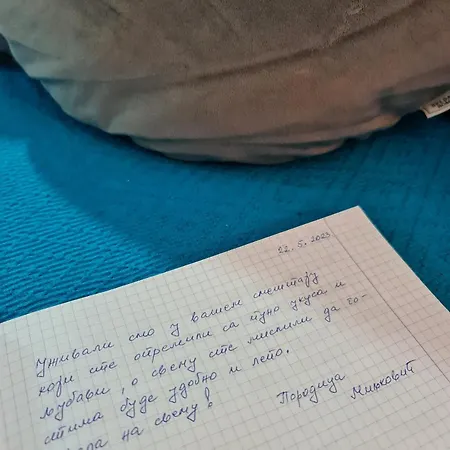 22. 5. 2023
Уживали смо у вашем смештају
који сте опремили са пуно укуса и
љубави, о свему сте мислили да го-
стима буде удобно и лепо.
на свему!
Породица
Миљковић